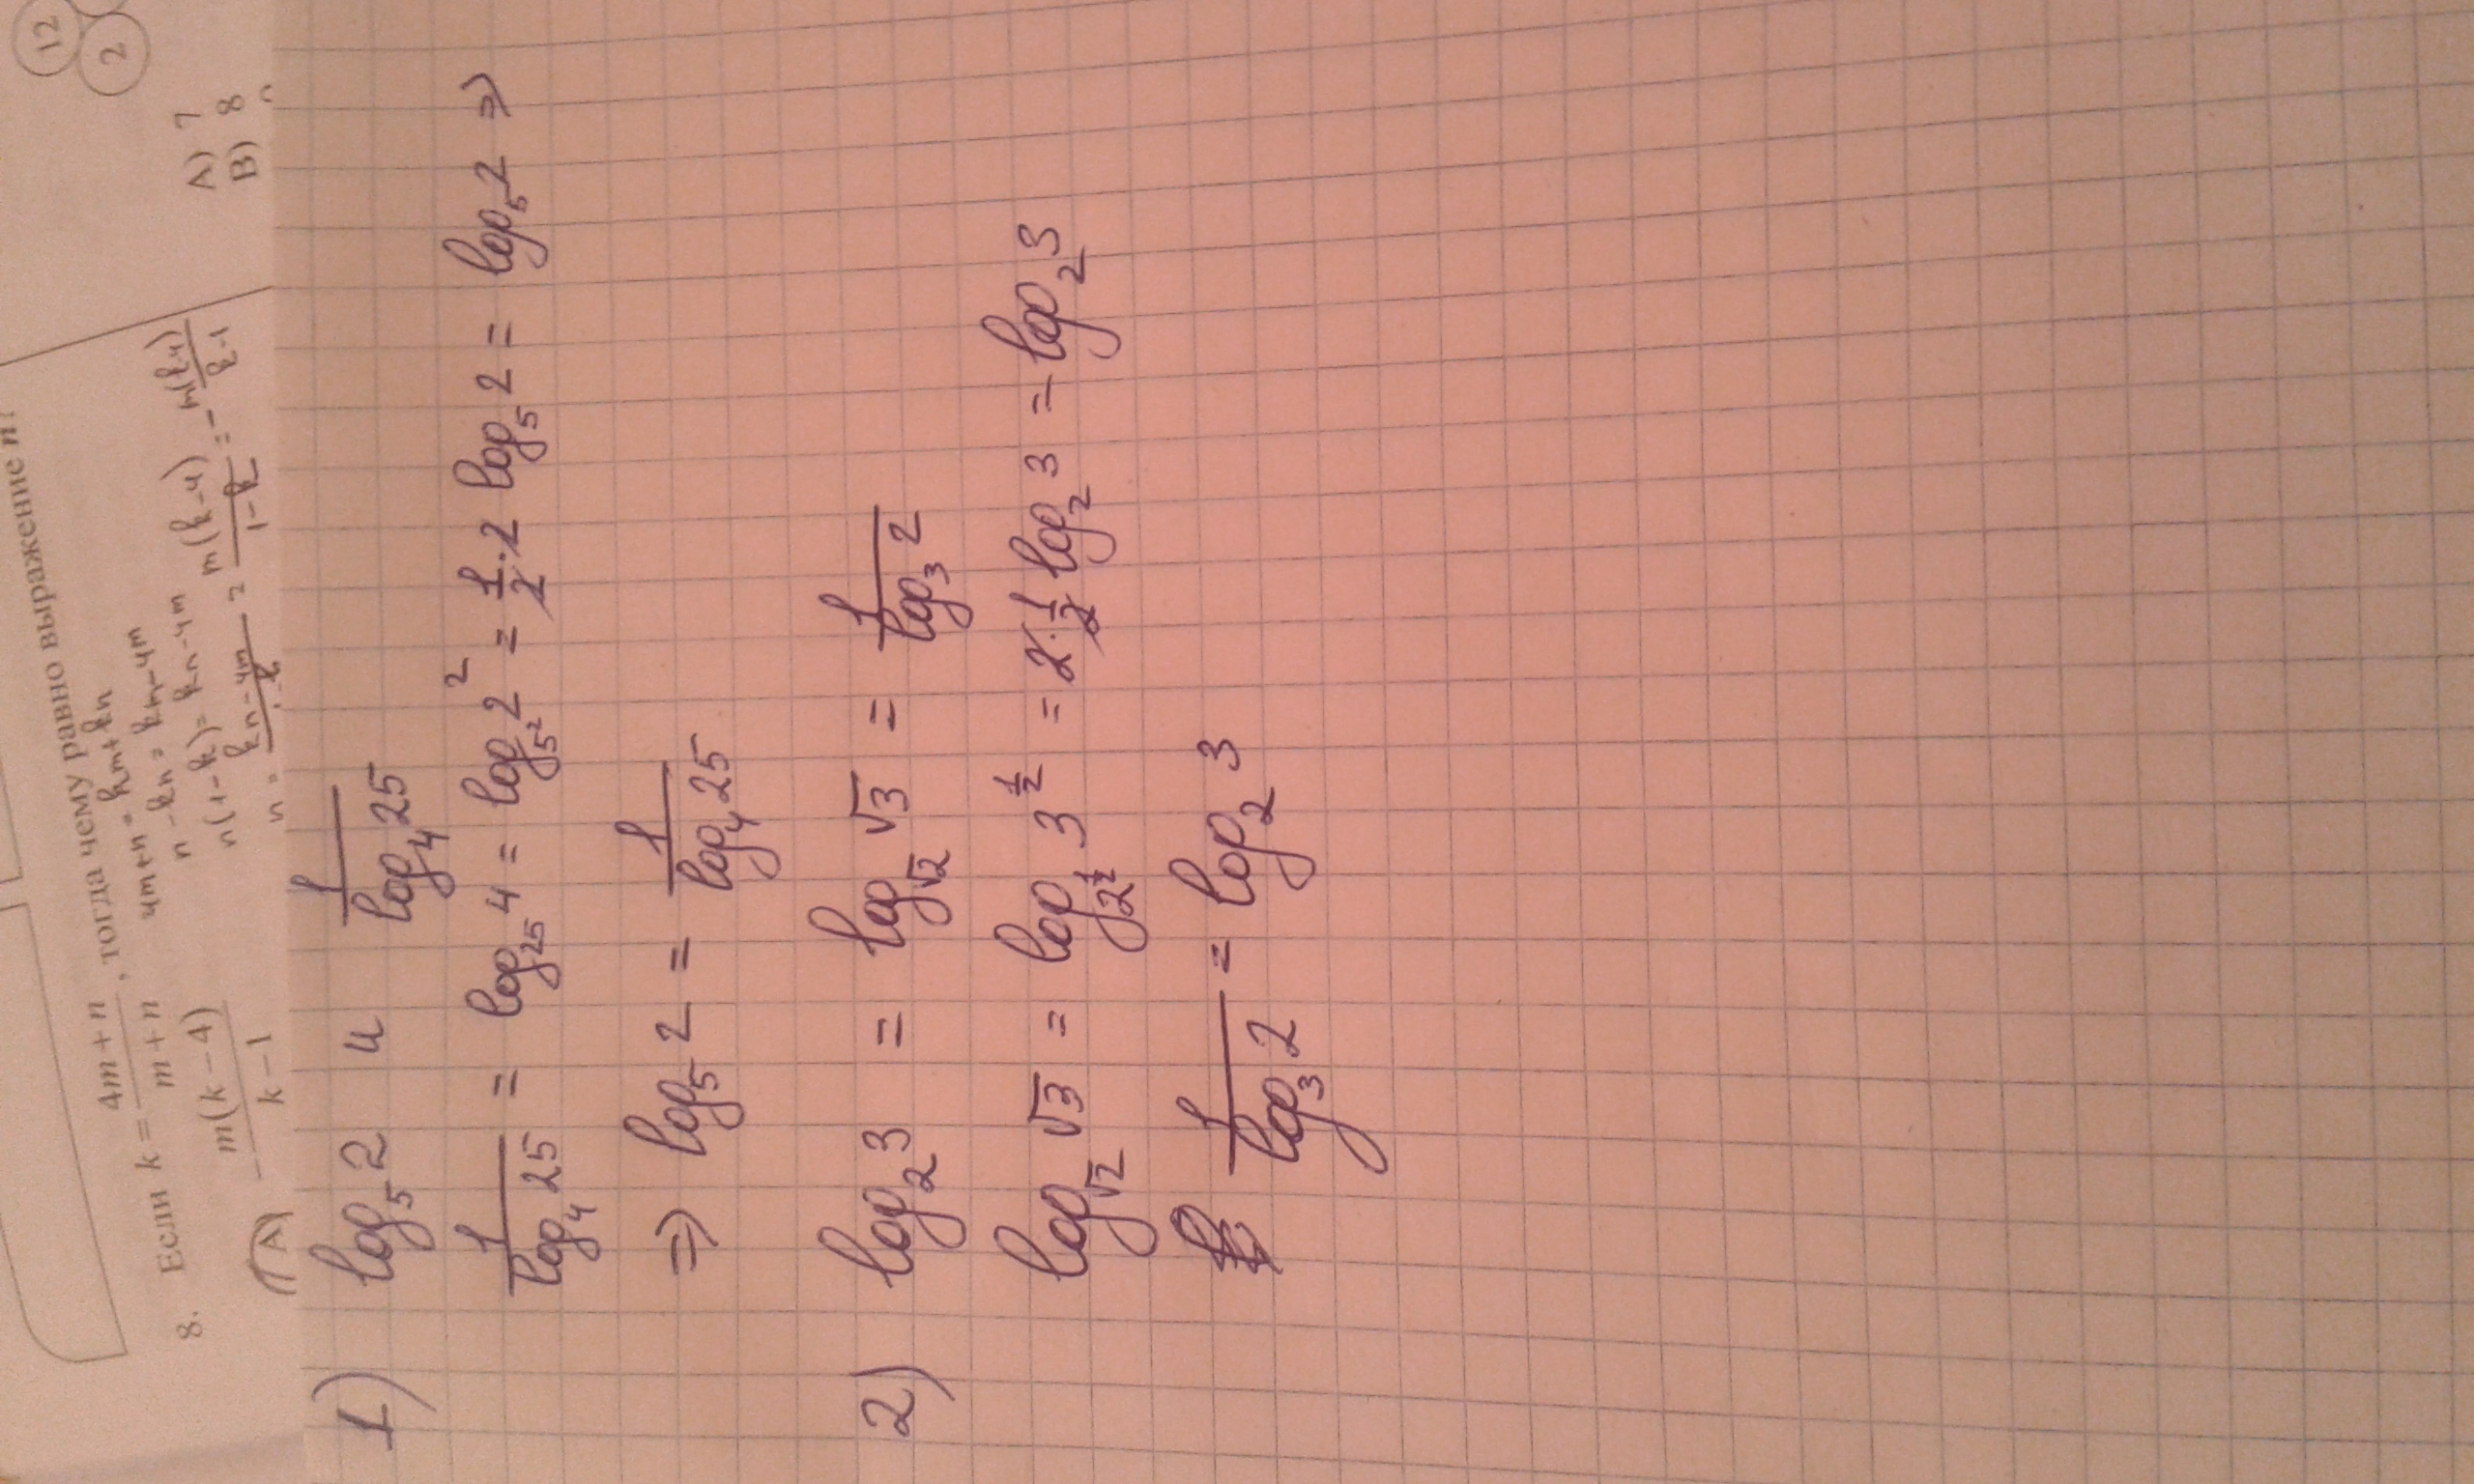 12
2
равно выражение n?
8. Если k = (4m + n)/(m + n), тогда чему
4m+n = km+kn
n-kn = km-4m
n(1-k) = kn-4m
n = (kn-4m)/(1-k) = m(k-4)/(1-k) = - m(k-4)/(k-1)
A) - m(k-4)/(k-1)
A) 7
B) 8
1) log₅2 и 1/log₄25
1/log₄25 = log₂₅4 = log_{5²}2² = 1/2·2 log₅2 = log₅2 ⇒
⇒ log₅2 = 1/log₄25
2) log₂3 = log_{√2}√3 = 1/log₃2
log_{√2}√3 = log_{2^{1/2}}3^{1/2} = 2·1/2 log₂3 = log₂3
1/log₃2 = log₂3